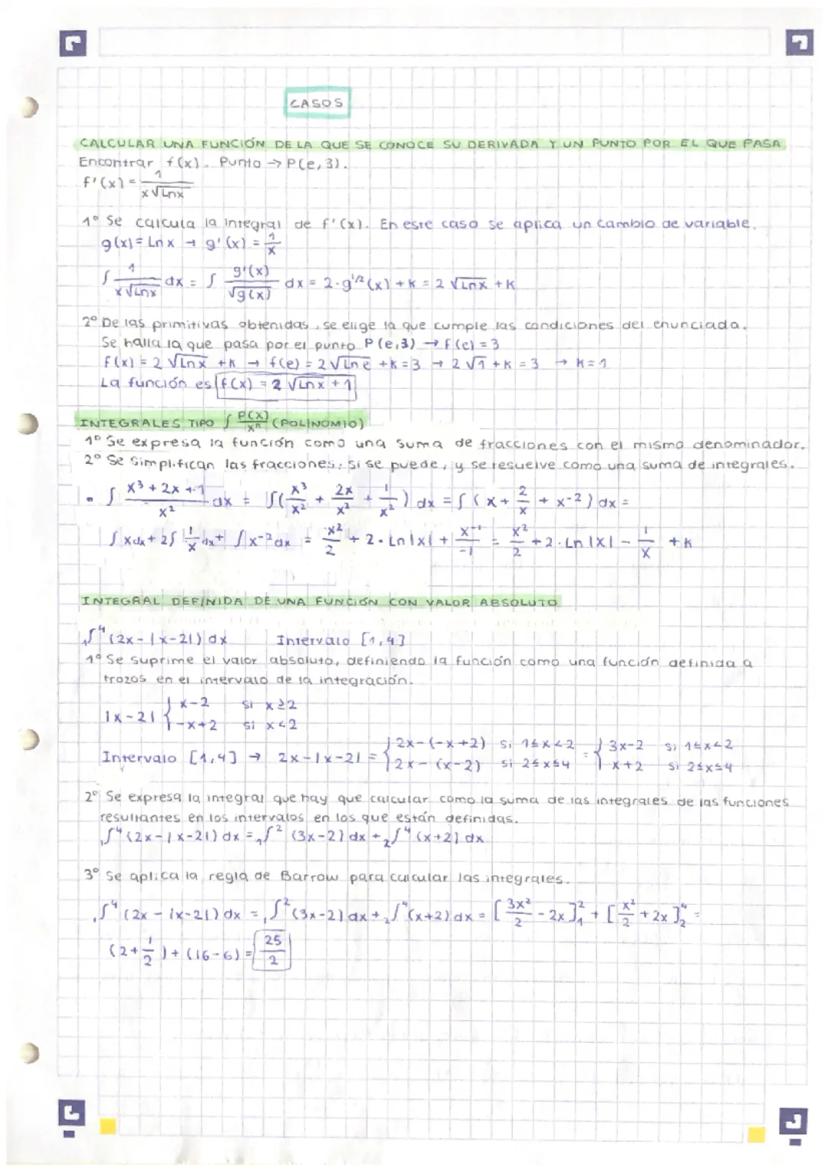 CASOS
CALCULAR UNA FUNCIÓN DE LA QUE SE CONOCE SU DERIVADA Y UN PUNTO POR EL QUE PASA
Encontrar f(x). Punto → P(e,3).
f'(x) = 1 / (x√Lnx)
1º Se calcula la integral de f'(x). En este caso se aplica un cambio de variable.
g(x) = Lnx → g'(x) = 1/x
∫ 1/(x√Lnx) dx = ∫ g'(x)/√g(x) dx = 2·g^1/2(x) + K = 2√Lnx + K
2º De las primitivas obtenidas, se elige la que cumple las condiciones del enunciada.
Se halla la que pasa por el punto P(e,3) → f(e) = 3
f(x) = 2√Lnx + K → f(e) = 2√Lne + K = 3 → 2√1 + K = 3 → K = 1
La función es f(x) = 2√Lnx + 1
INTEGRALES TIPO ∫ P(x)/xⁿ (POLINOMIO)
1º Se expresa la función como una suma de fracciones con el mismo denominador.
2º Se simplifican las fracciones, si se puede, y se resuelve como una suma de integrales.
• ∫ (x³ + 2x + 1)/x² dx = ∫(x³/x² + 2x/x² + 1/x²) dx = ∫(x + 2/x + x⁻²) dx =
∫xdx + 2∫ 1/x dx + ∫x⁻²dx = x²/2 + 2·Ln|x| + x⁻¹/-1 = x²/2 + 2·Ln|x| - 1/x + K
INTEGRAL DEFINIDA DE UNA FUNCIÓN CON VALOR ABSOLUTO
₁∫⁴ (2x-|x-2|) dx Intervalo [1,4]
1º Se suprime el valor absoluto, definiendo la función como una función definida a
trozos en el intervalo de la integración.
|x-2| { x-2 si x≥2
-x+2 si x<2
Intervalo [1,4] → 2x-|x-2| = { 2x-(-x+2) si 1≤x<2 = { 3x-2 si 1≤x<2
2x-(x-2) si 2≤x≤4 x+2 si 2≤x≤4
2º Se expresa la integral que hay que calcular como la suma de las integrales de las funciones
resultantes en los intervalos en los que están definidas.
₁∫⁴ (2x-|x-2|) dx = ₁∫² (3x-2) dx + ₂∫⁴ (x+2) dx
3º Se aplica la regla de Barrow para calcular las integrales.
₁∫⁴ (2x-|x-2|) dx = ₁∫² (3x-2) dx + ₂∫⁴ (x+2) dx = [3x²/2 - 2x]₁² + [x²/2 + 2x]₂⁴ =
(2+1/2) + (16-6) = 25/2